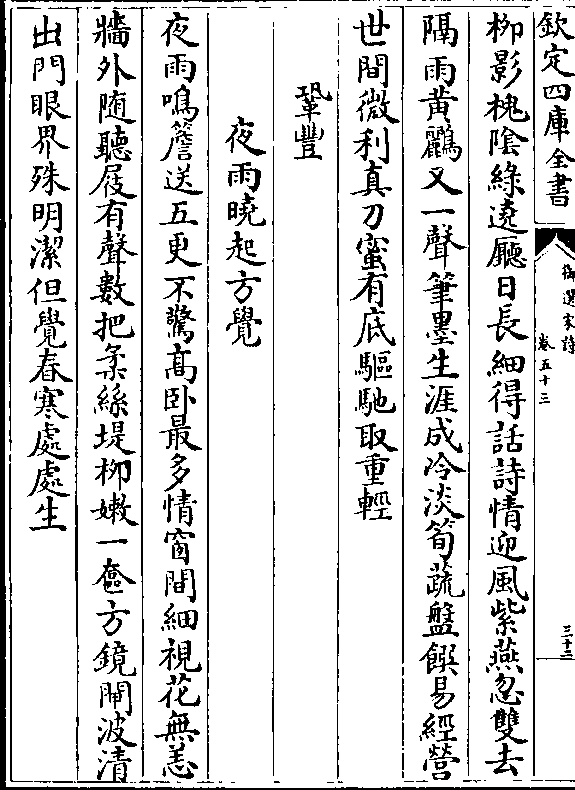 欽定四庫全書
御選宋詩
卷五十三
三十二
栁影槐隂綠遶廳日長細得話詩情迎風紫燕忽雙去
隔雨黄鸝又一聲筆墨生涯成冷淡筍蔬盤饌易經營
世間微利真刀蜜有底驅馳取重輕
鞏豐
夜雨曉起方覺
夜雨鳴簷送五更不驚髙卧最多情窗間細視花無恙
牆外随聽屐有聲數把柔絲堤栁嫩一奩方鏡閘波清
出門眼界殊明潔但覺春寒處處生